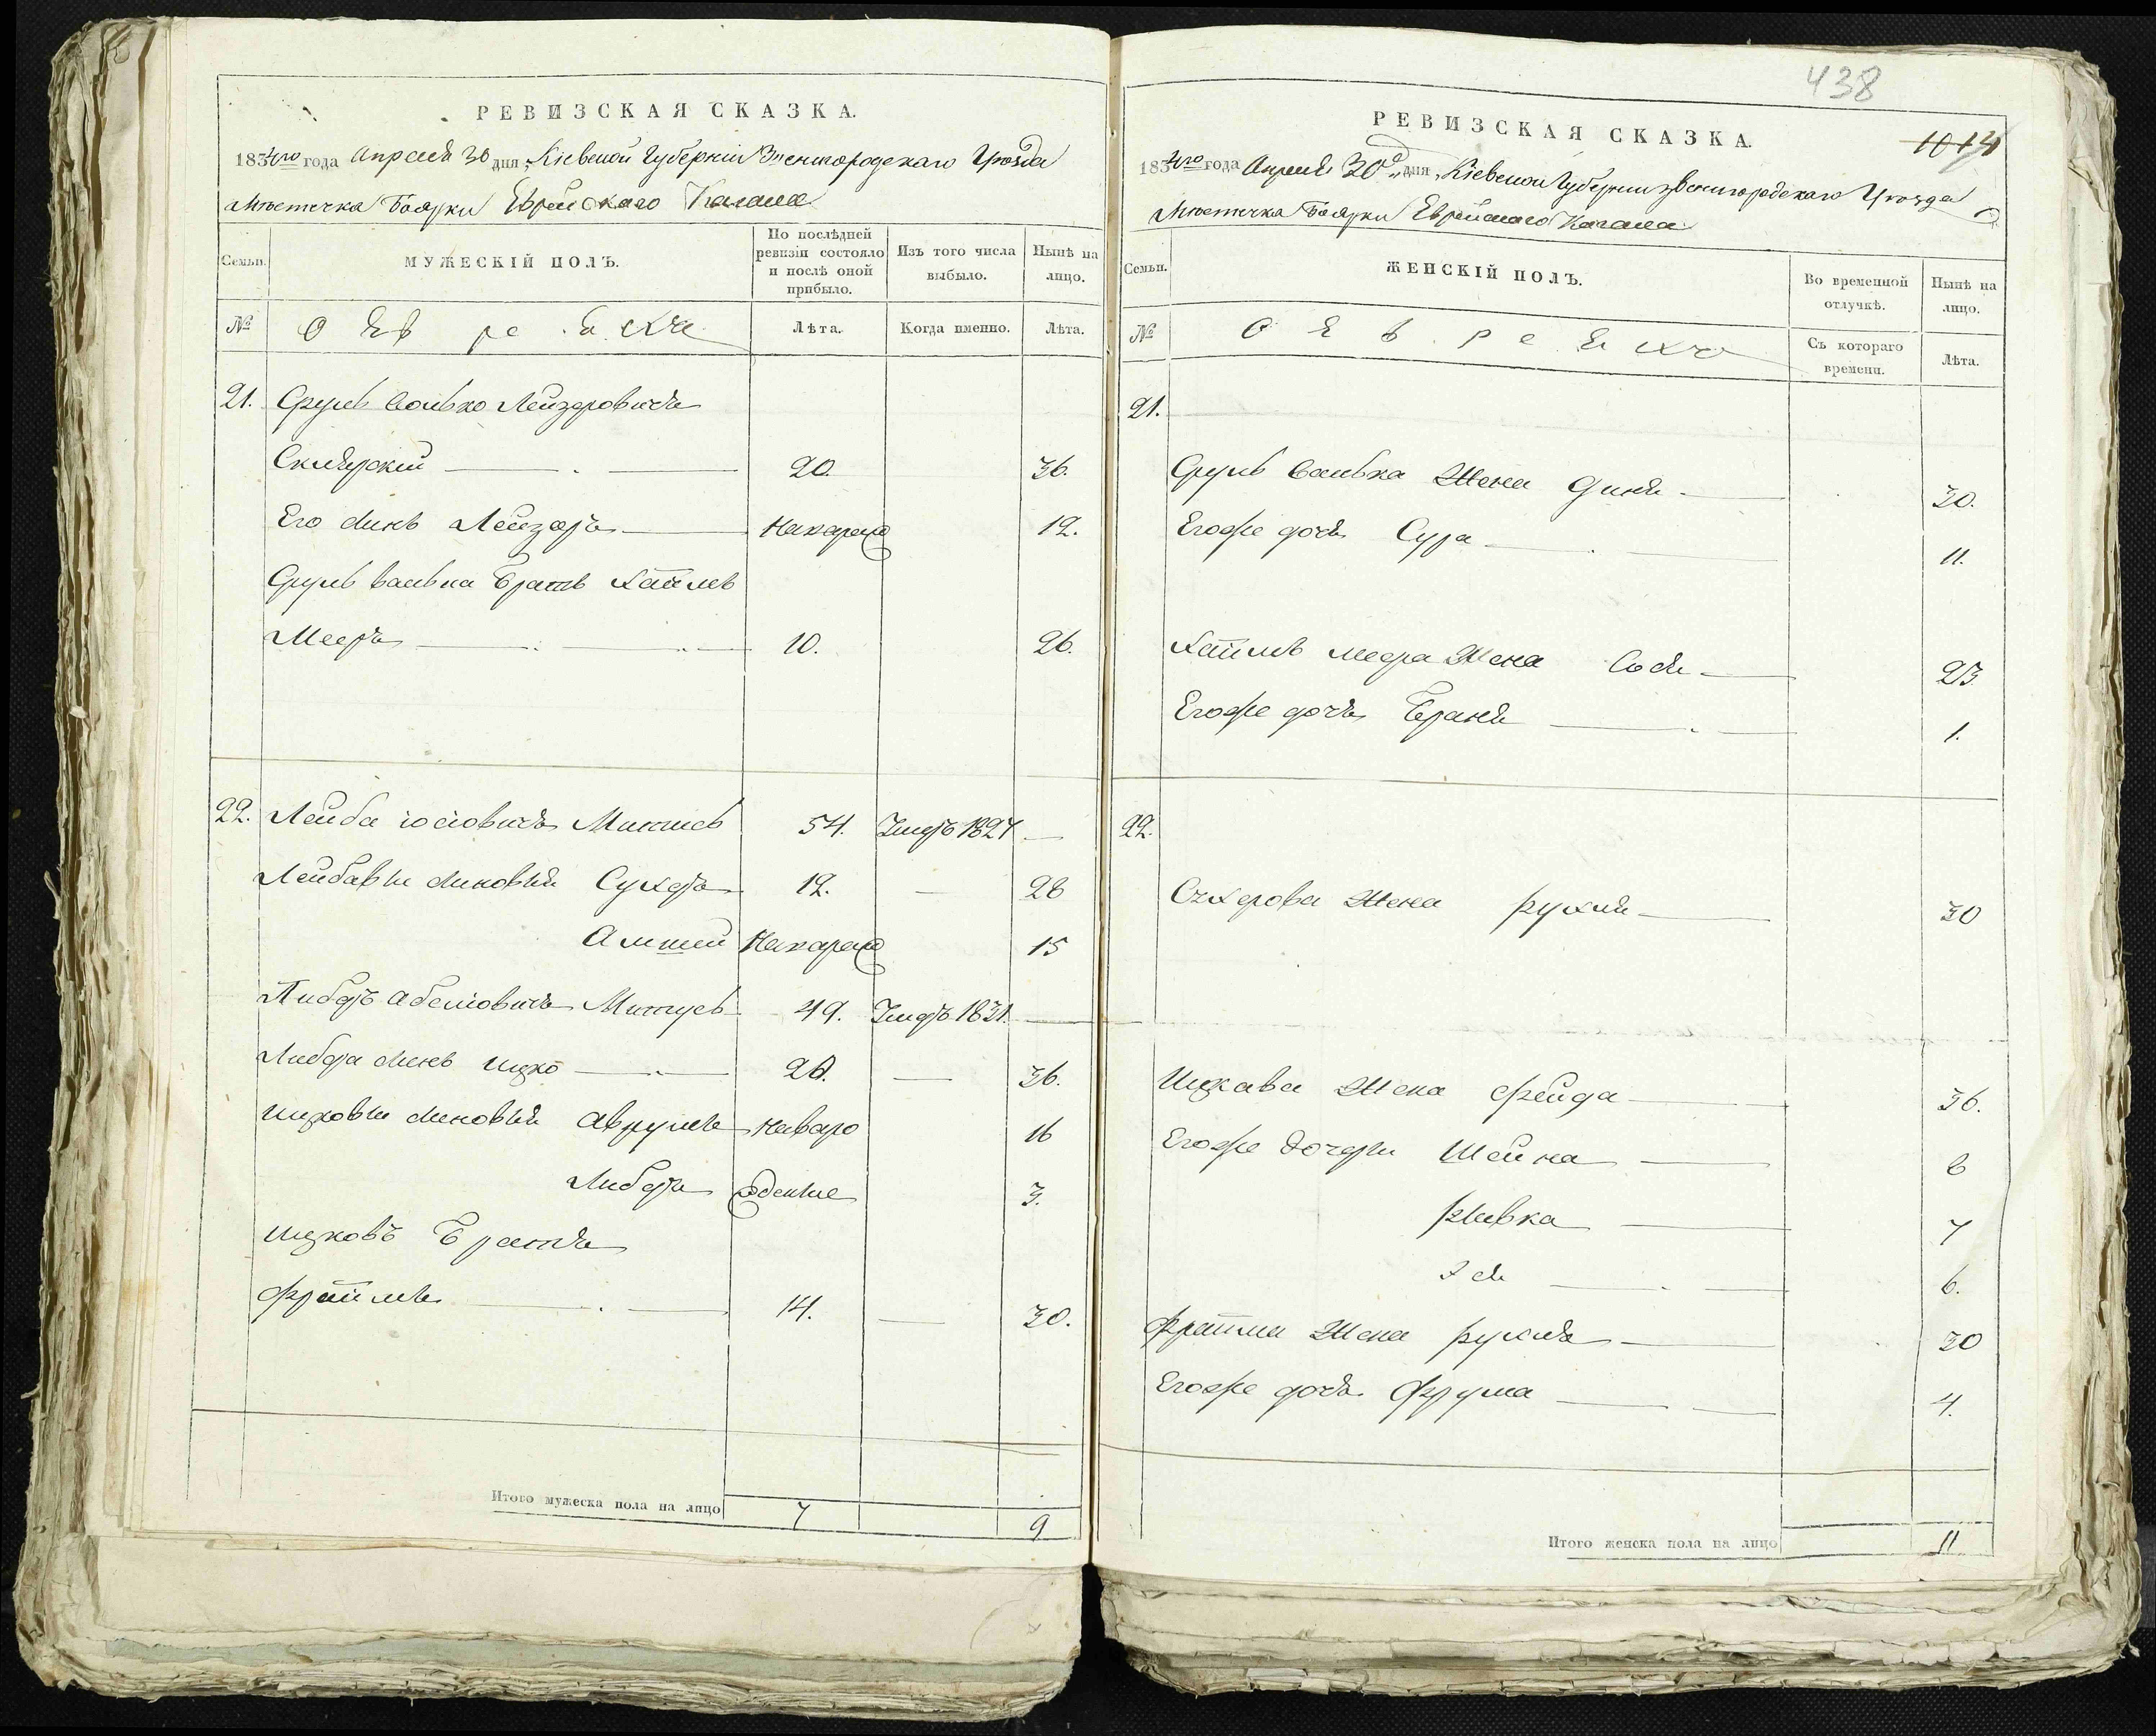 РЕВИЗСКАЯ СКАЗКА.
1834го года Апреля 30 дня, Кіевской Губерніи Звенигородскаго Уѣзда
Мѣстечка Боярки Еврейскаго Кагала
Семьи.
МУЖЕСКІЙ ПОЛЪ.
По послѣдней ревизіи состояло и послѣ оной прибыло.
Изъ того числа выбыло.
Нынѣ на лицо.
№
О Евреяхъ
Лѣта.
Когда именно.
Лѣта.
21. Сруль Волько Лейзеровичъ
Сквирскій 20. 36.
Его сынъ Лейзеръ 12.
Сруль Волька Братъ Хаимъ
Мееръ 10. 26.
22. Лейба Іосіовичъ 54. Умеръ 1827
Лейбавы сыновья Сухеръ 12. 28
15
49. Умеръ 1831.
Либера сынъ Ицко 20. 36.
Ицковы сыновья Аврумъ Новоро 16
Либеръ жденные 3.
Ицковъ Братъ
Фраимъ 14. 30.
Итого мужеска пола на лицо 7 9
438
1014
РЕВИЗСКАЯ СКАЗКА.
1834го года Апреля 30го дня, Кіевской Губерніи Звенигородскаго Уѣзда
Мѣстечка Боярки Еврейскаго Кагала
Семьи.
ЖЕНСКІЙ ПОЛЪ.
Во временной отлучкѣ.
Нынѣ на лицо.
№
О Евреяхъ
Съ котораго времени.
Лѣта.
21.
Сруль Волька Жена 30.
Егоже дочь Сура 11.
Хаимъ Меера Жена 23
Егоже дочь 1.
22.
Сухерова Жена Рухля 30
Ицкава Жена Фейда 36.
Егоже дочери Шейна 8
Рывка 7
6.
Фраима Жена Рухля 30
Егоже дочь Фрума 4.
Итого женска пола на лицо 11